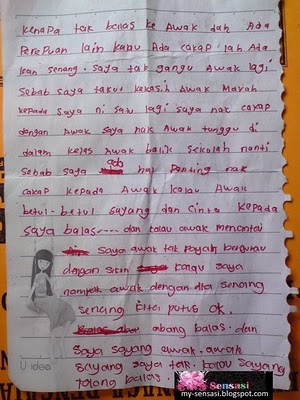 kenapa tak balas ke Awak dah Ada
Perempuan lain kalau Ada cakap lah Ada
kan senang. saya tak gangu Awak lagi
sebab saya takut kekasih Awak Marah
kepada saya ni satu lagi saya nak cakap
dengan Awak saya nak Awak tunggu di
dalam kelas Awak balik sekolah nanti
sebab saya ada hal Penting nak
cakap kepada Awak kalau Awak
betul-betul sayang dan cinta kepada
saya balas---- dan kalau awak mencintai
saya awak tak payah bergurau
dengan kalau saya
nampak awak dengan dia senang
senang kita putus ok.
abang balas. dan
saya sayang awak. awak
sayang saya tak. kalau sayang
tolong balas.
U idea
Sensasi
my-sensasi.blogspot.com